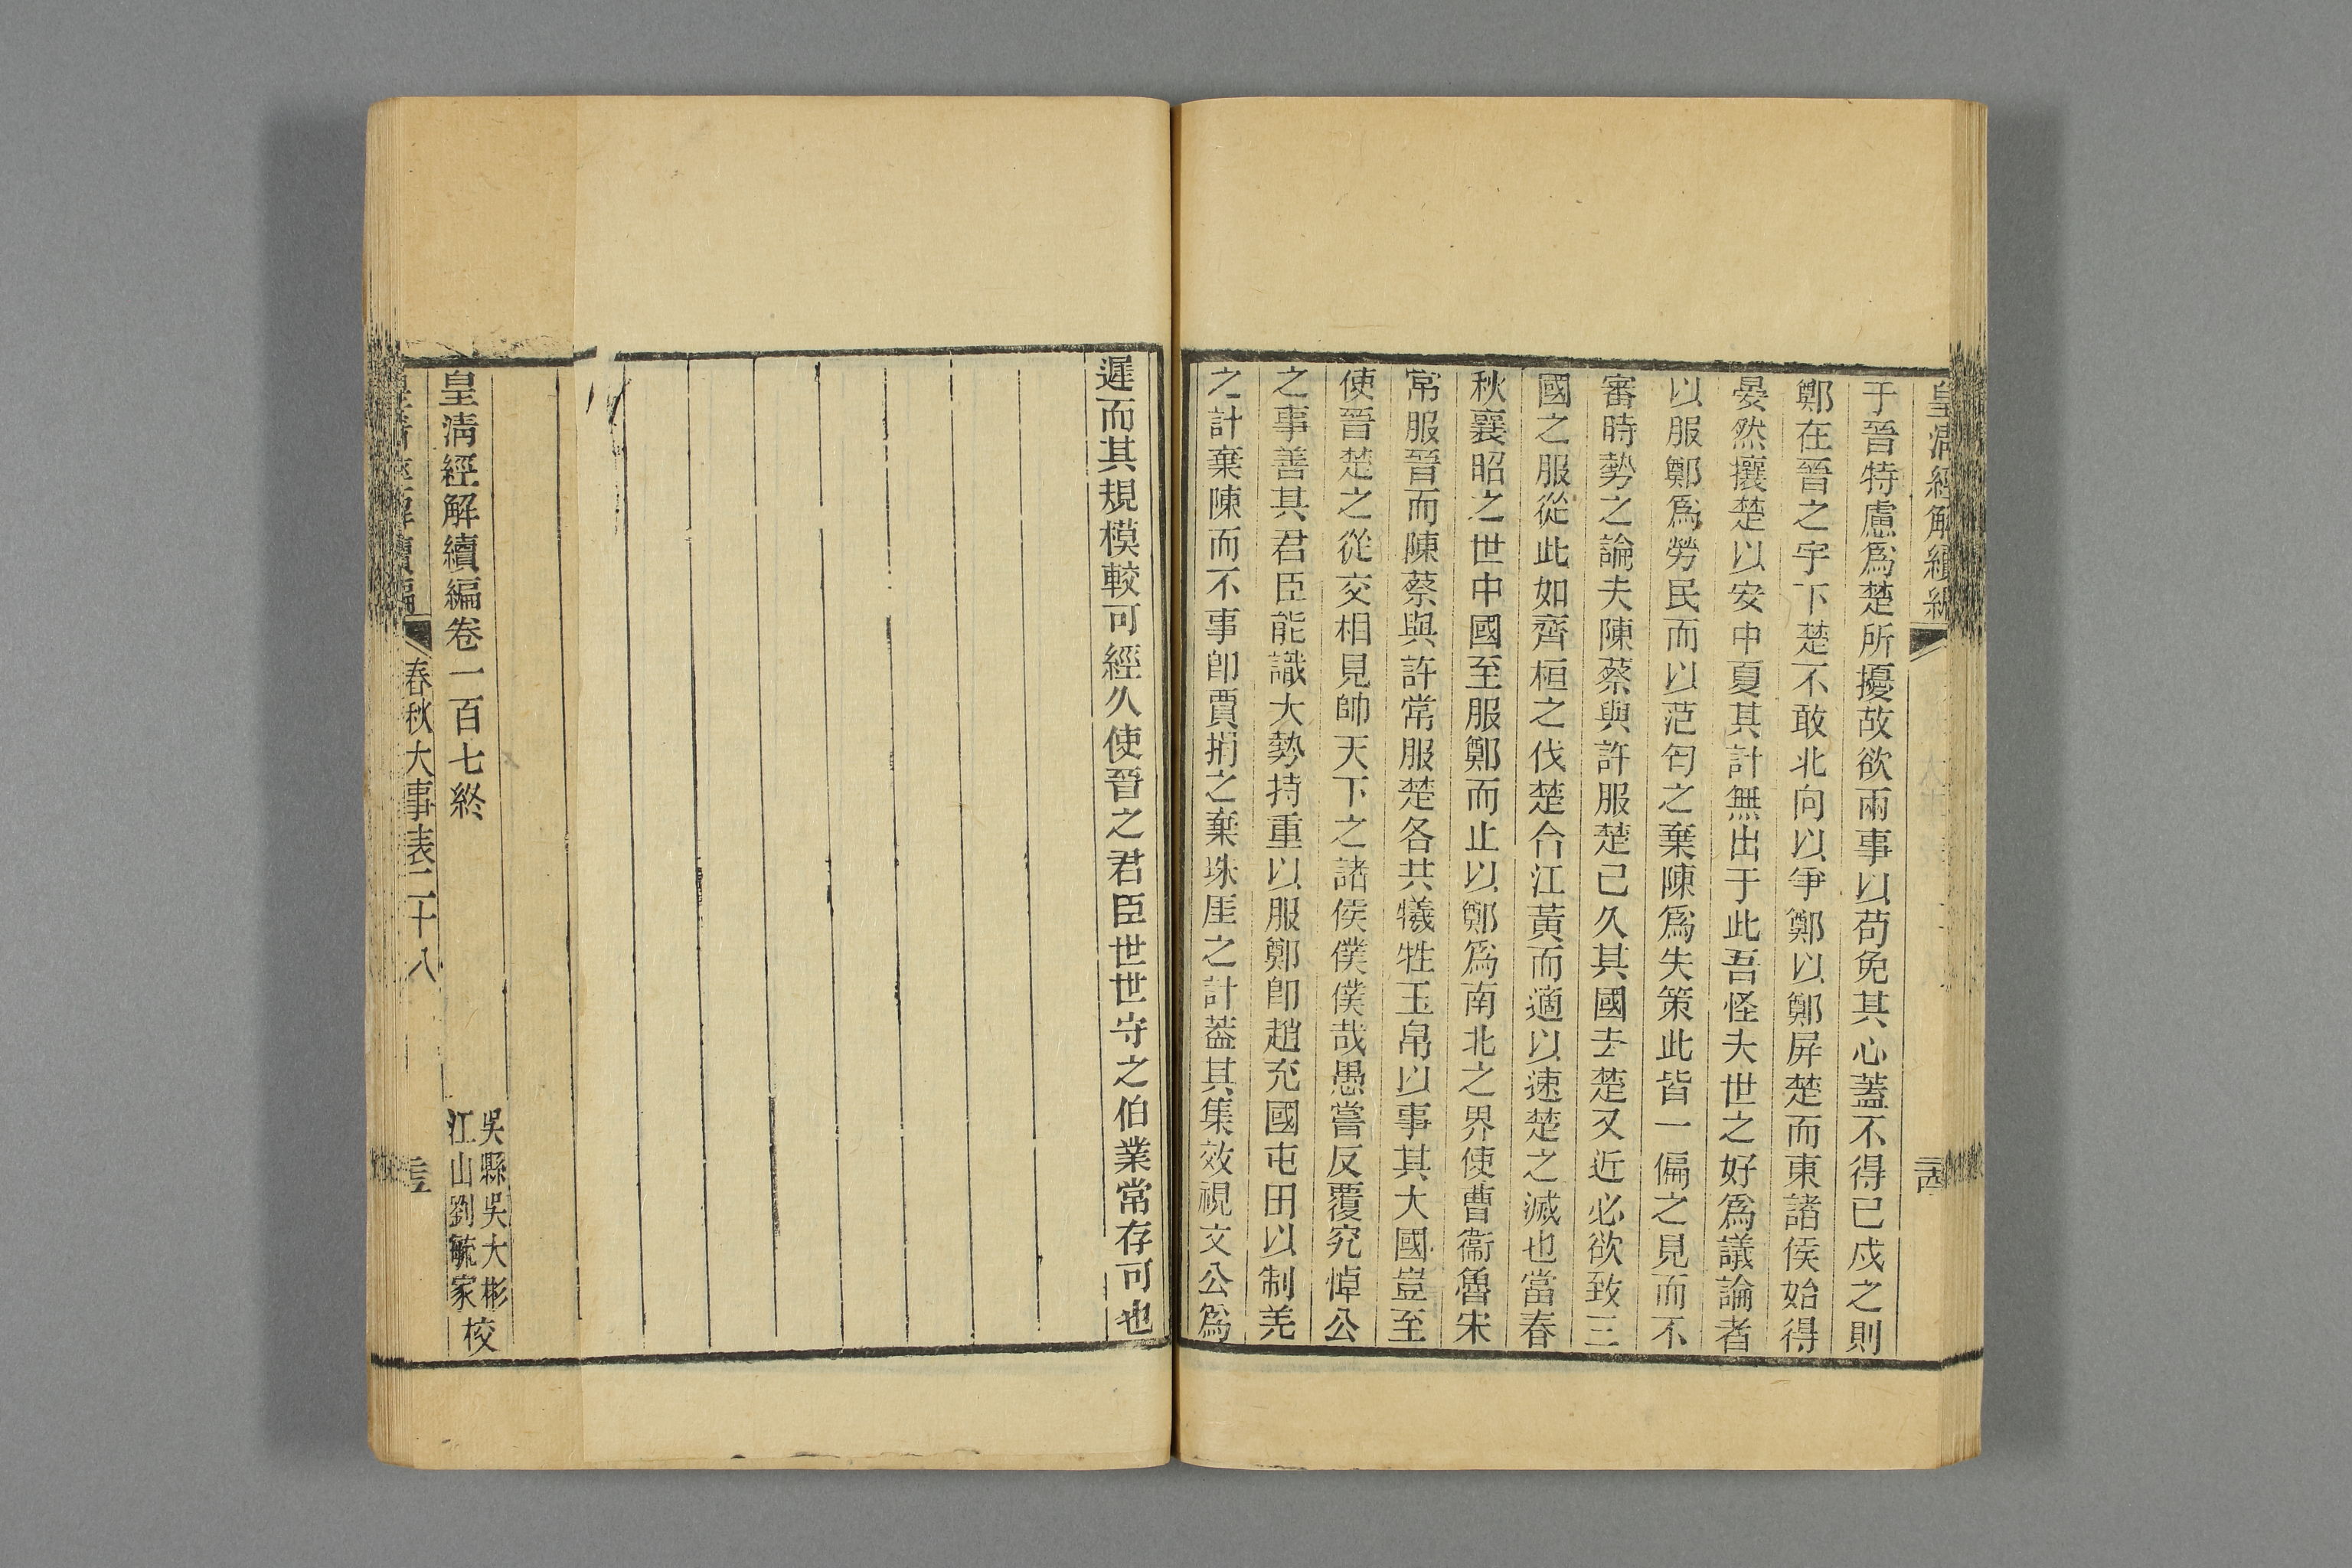 皇清經解續編
于晉特慮爲楚所擾故欲兩事以苟免其心蓋不得已戍之則
鄭在晉之宇下楚不敢北向以爭鄭以鄭屏楚而東諸侯始得
晏然攘楚以安中夏其計無出于此吾怪夫世之好爲議論者
以服鄭爲勞民而以范匄之棄陳爲失策此皆一偏之見而不
審時勢之論夫陳蔡與許服楚已久其國去楚又近必欲致三
國之服從此如齊桓之伐楚合江黃而適以速楚之滅也當春
秋襄昭之世中國至服鄭而止以鄭爲南北之界使曹衞魯宋
常服晉而陳蔡與許常服楚各共犧牲玉帛以事其大國豈至
使晉楚之從交相見帥天下之諸侯僕僕哉愚嘗反覆究悼公
之事善其君臣能識大勢持重以服鄭卽趙充國屯田以制羌
之計棄陳而不事卽賈捐之棄珠厓之計葢其集效視文公爲
遲而其規模較可經久使晉之君臣世世守之伯業常存可也
皇清經解續編卷一百七終
吳縣吳大彬
江山劉毓家
校
皇清經解續編
春秋大事表二十八